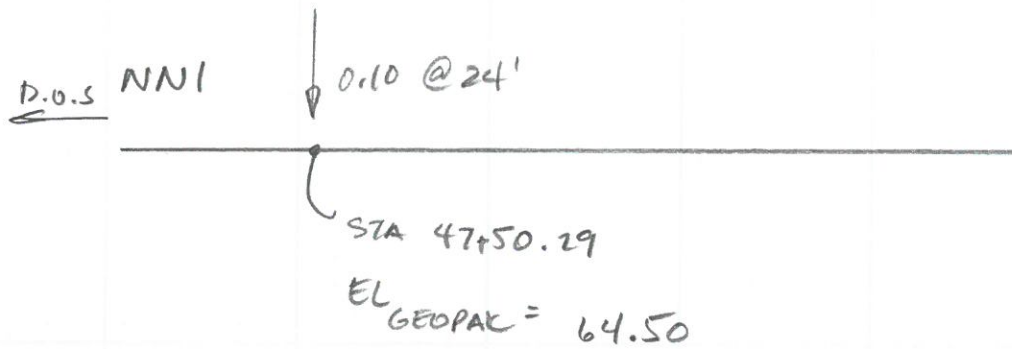 D.O.S NN1 0.10 @ 24'
STA 47+50.29
EL GEOPAK = 64.50